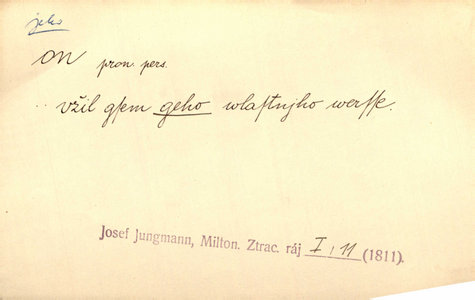 jeho
on pron. pers.
.. vžil gsem geho wlaſtnjho werſſe.
Josef Jungmann, Milton. Ztrac. ráj I, 11 (1811).